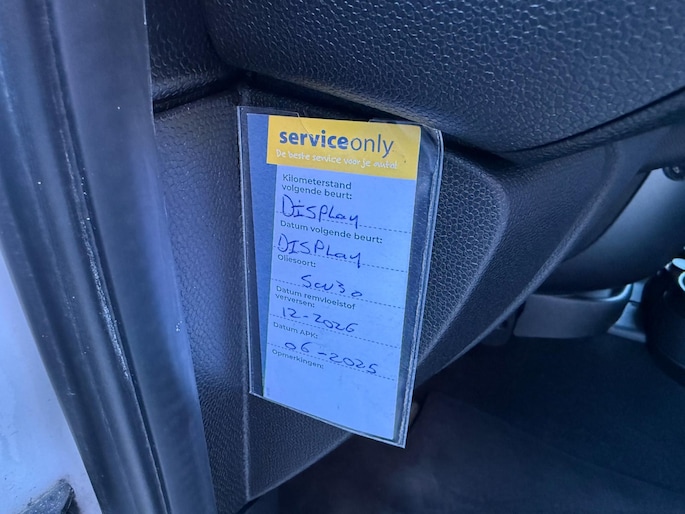 serviceonly
De beste service voor je auto!
Kilometerstand
volgende beurt:
DISPLAY
Datum volgende beurt:
DISPLAY
Oliesoort:
5W30
Datum remvloeistof
verversen:
12-2026
Datum APK:
06-2025
Opmerkingen: